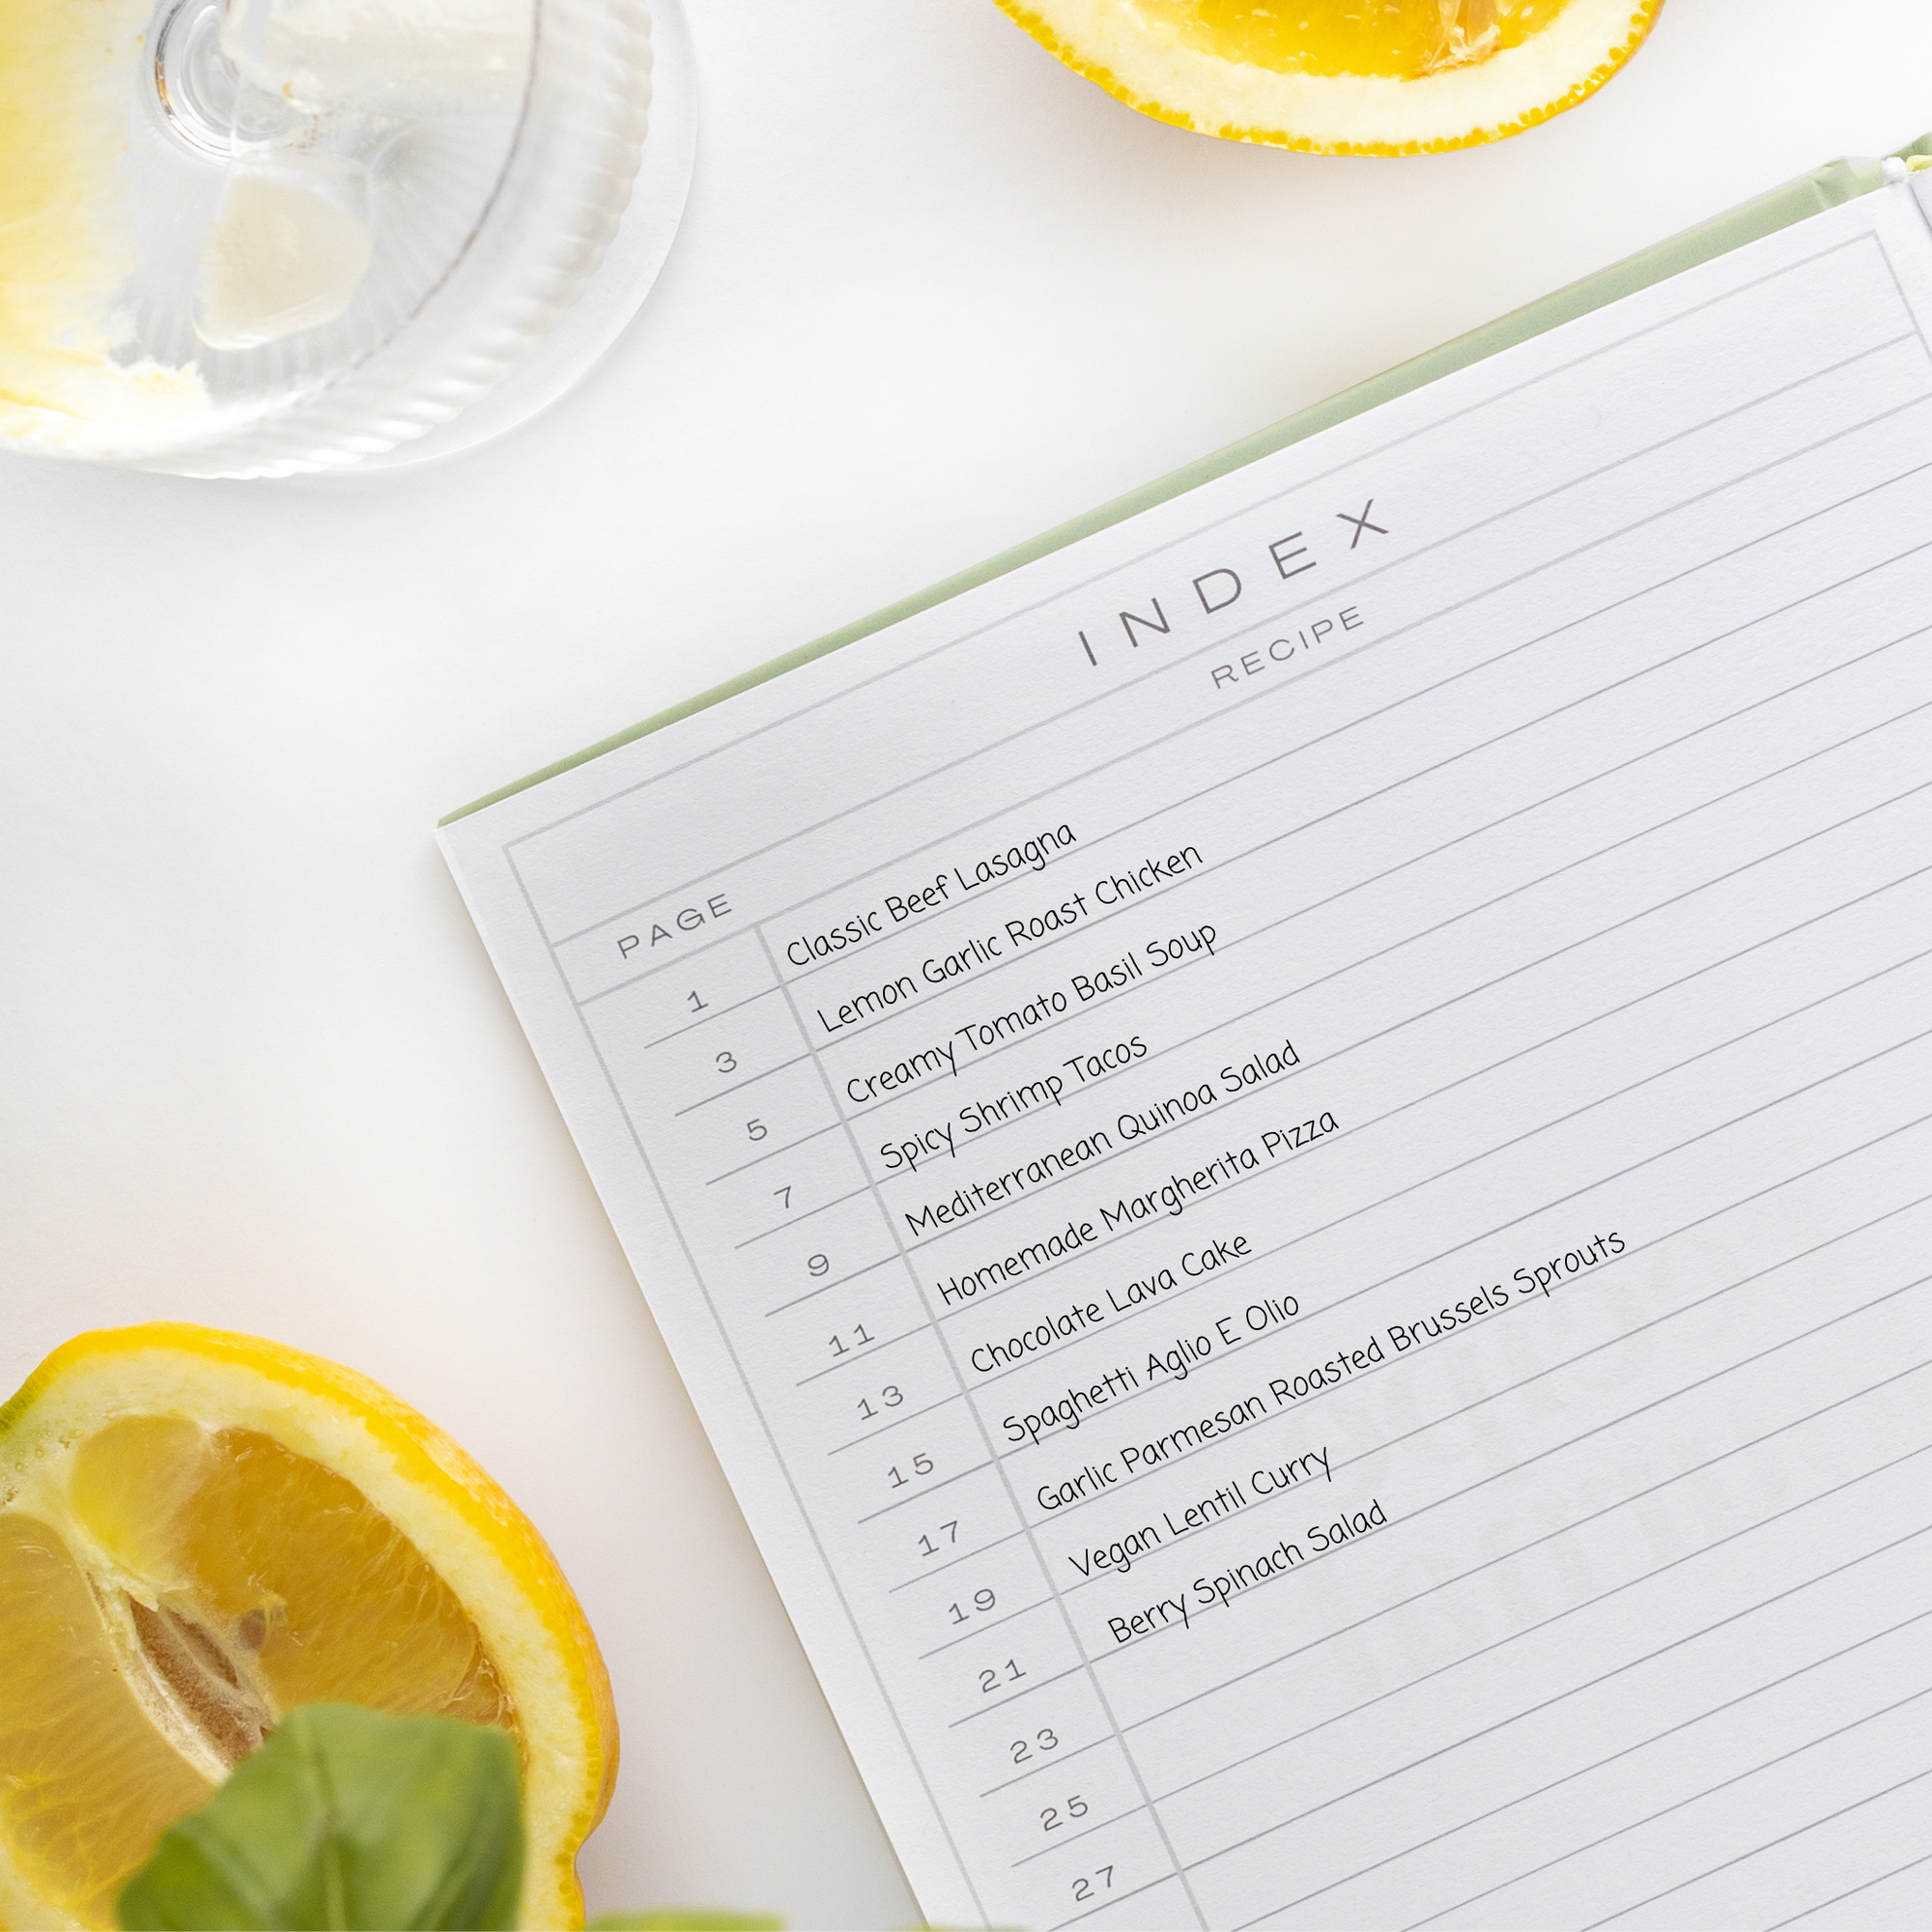 INDEX
PAGE RECIPE
1 Classic Beef Lasagna
3 Lemon Garlic Roast Chicken
5 Creamy Tomato Basil Soup
7 Spicy Shrimp Tacos
9 Mediterranean Quinoa Salad
11 Homemade Margherita Pizza
13 Chocolate Lava Cake
15 Spaghetti Aglio E Olio
17 Garlic Parmesan Roasted Brussels Sprouts
19 Vegan Lentil Curry
21 Berry Spinach Salad
23
25
27